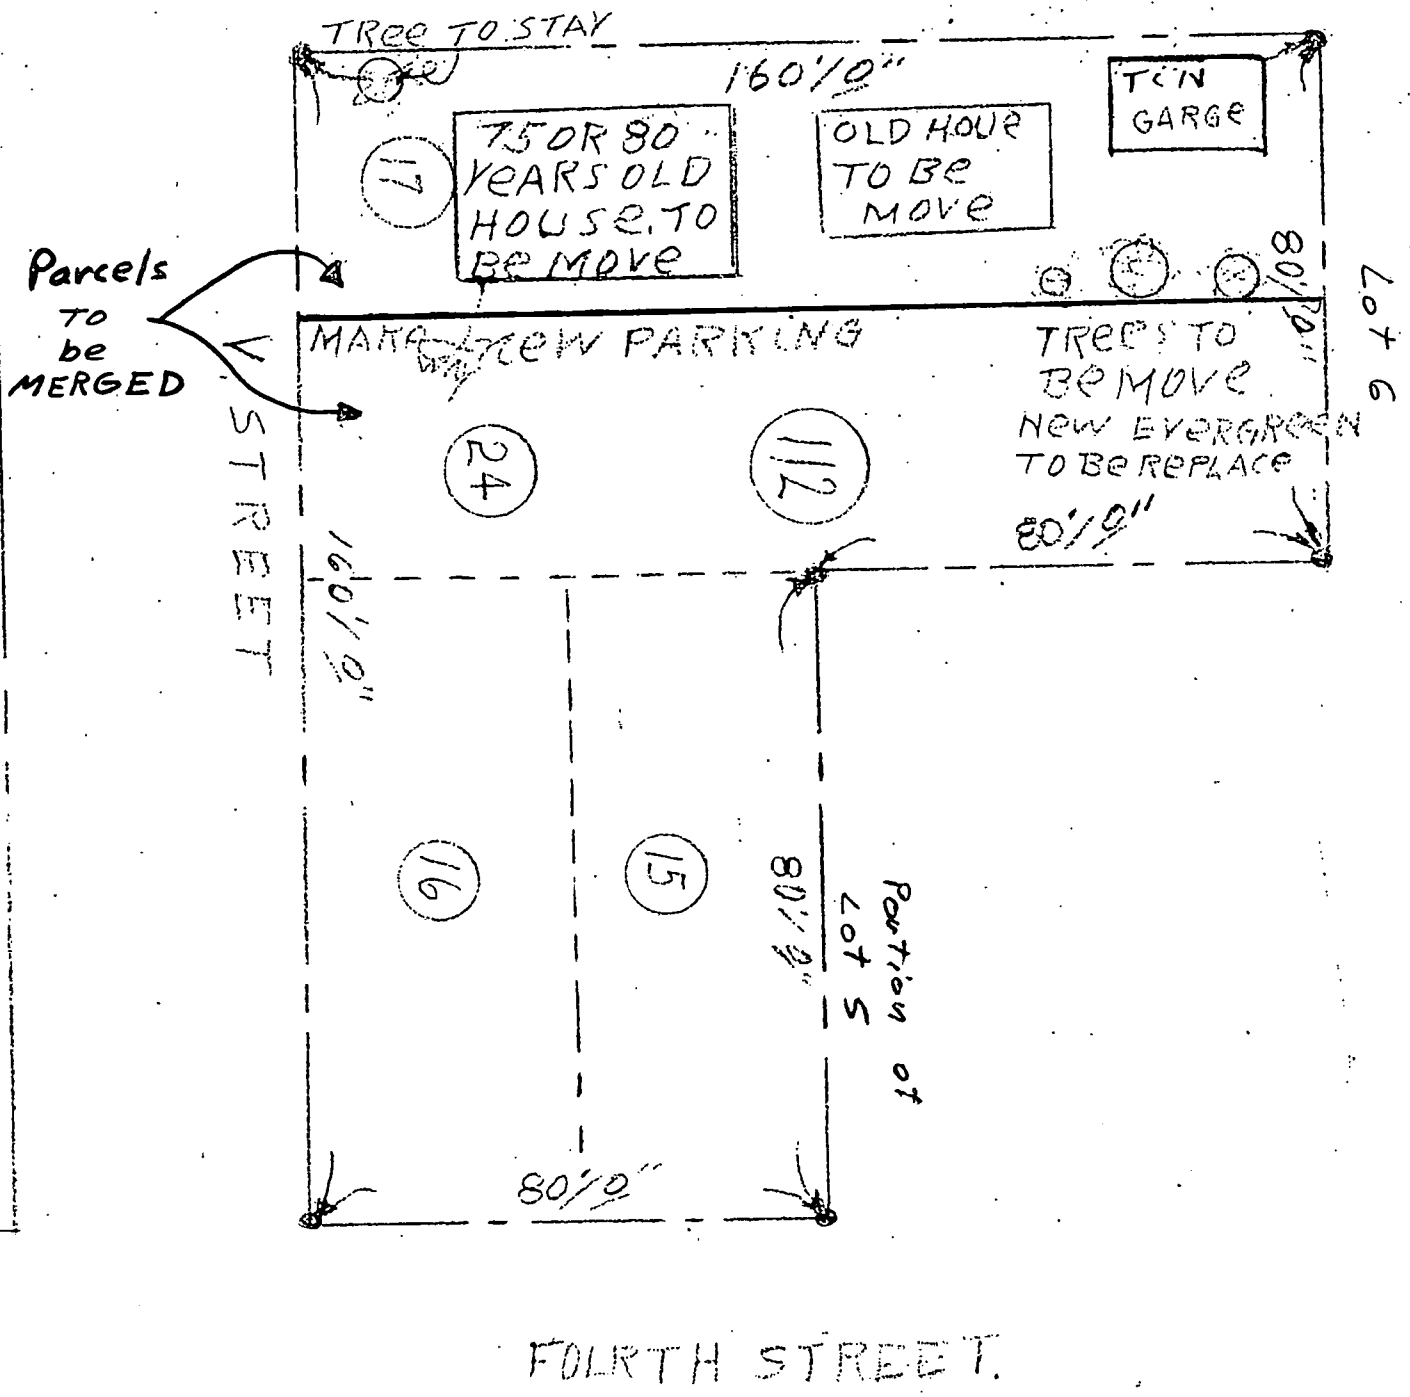 TRee TO STAY
160'/0"
TIN
GARGe
17
75 OR 80
YeARS OLD
HOUSe. TO
Be MOVe
OLD HOUe
TO Be
MOVe
80'/0"
Lot 6
Parcels
TO
be
MERGED
V STREET
NEW PARKING
TReeS TO
Be MOVe
NeW EVeRGReeN
TO Be RePLACe
24
112
80'/0"
160'/0"
16
15
80'/0"
Portion of
Lot 5
80'/0"
FOURTH STREET.